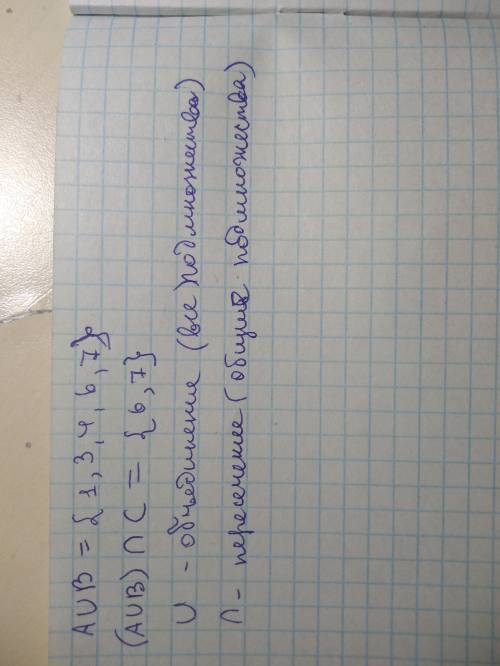 A∪B = {1, 3, 4, 6, 7}
(A∪B) ∩ C = {6, 7}
∪ - объединение (все подмножества)
∩ - пересечение (общие подмножества)